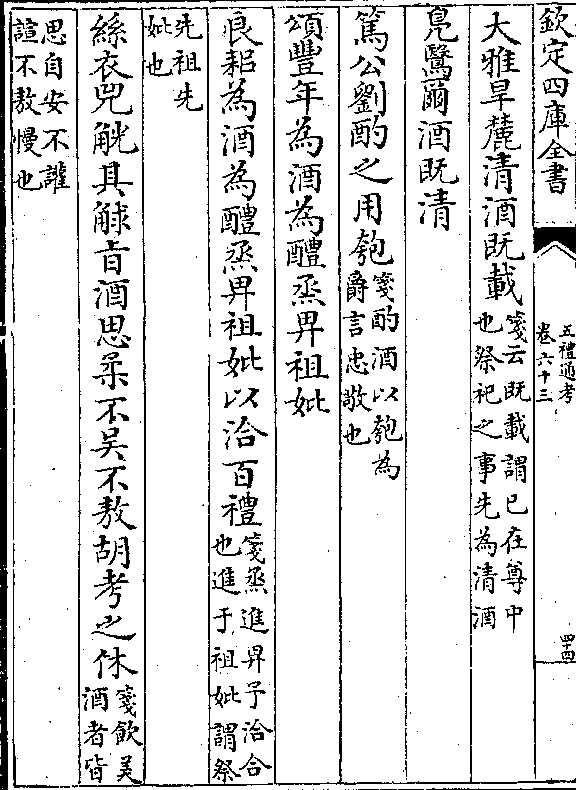 欽定四庫全書
五禮通考
卷六十三
四十四
大雅旱麓清酒既載
箋云既載謂已在尊中
也祭祀之事先為清酒
鳧鷖爾酒既清
篤公劉酌之用匏
箋酌酒以匏為
爵言忠敬也
頌豐年為酒為醴烝畀祖妣
良耜為酒為醴烝畀祖妣以洽百禮
箋烝進畀予洽合
也進于祖妣謂祭
先祖先
妣也
絲衣兕觥其觩㫖酒思柔不吴不敖胡考之休
箋飲美
酒者皆
思自安不讙
諠不敖慢也